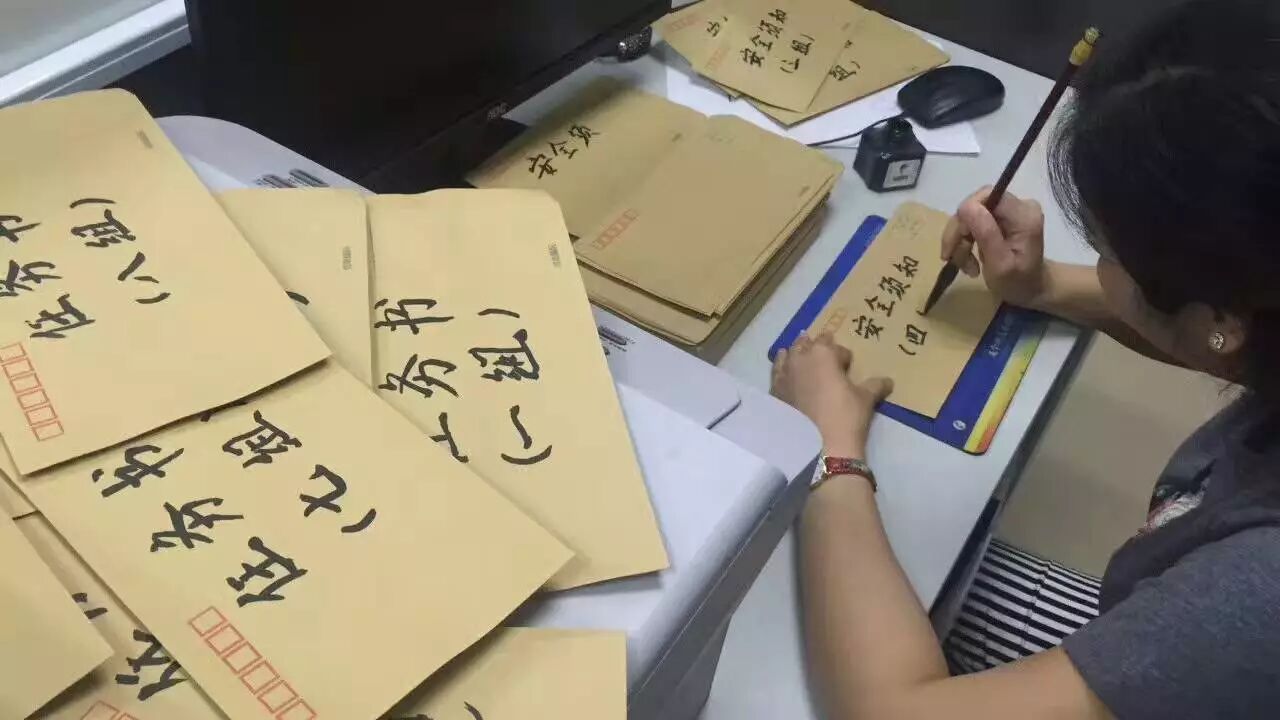 任务书
(八组)
任务书
(七组)
务书
(一组)
任
安全须
安全须知
组)
安全须知
(四